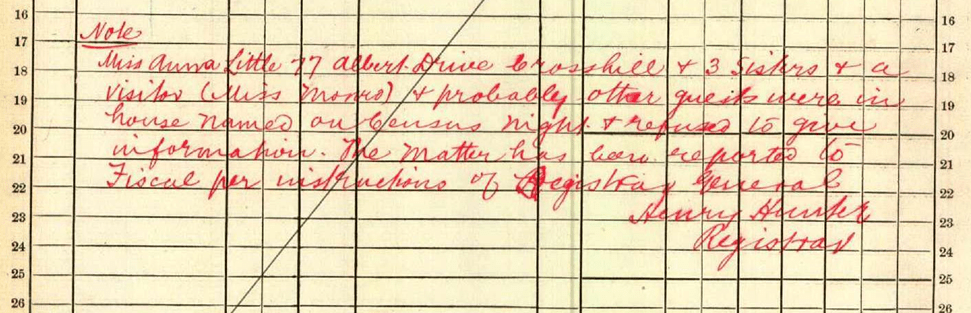 16 16
Note
17 17
Miss Anna Little 77 Albert Drive Crosshill & 3 Sisters & a
18 18
visitor (Miss Monro) & probably other guests were in
19 19
house named on Census night & refused to give
20 20
information. The Matter has been reported to
21 21
Fiscal per instructions of Registrar General
22 22
Henry Hunter
23 23
Registrar
24 24
25 25
26 26